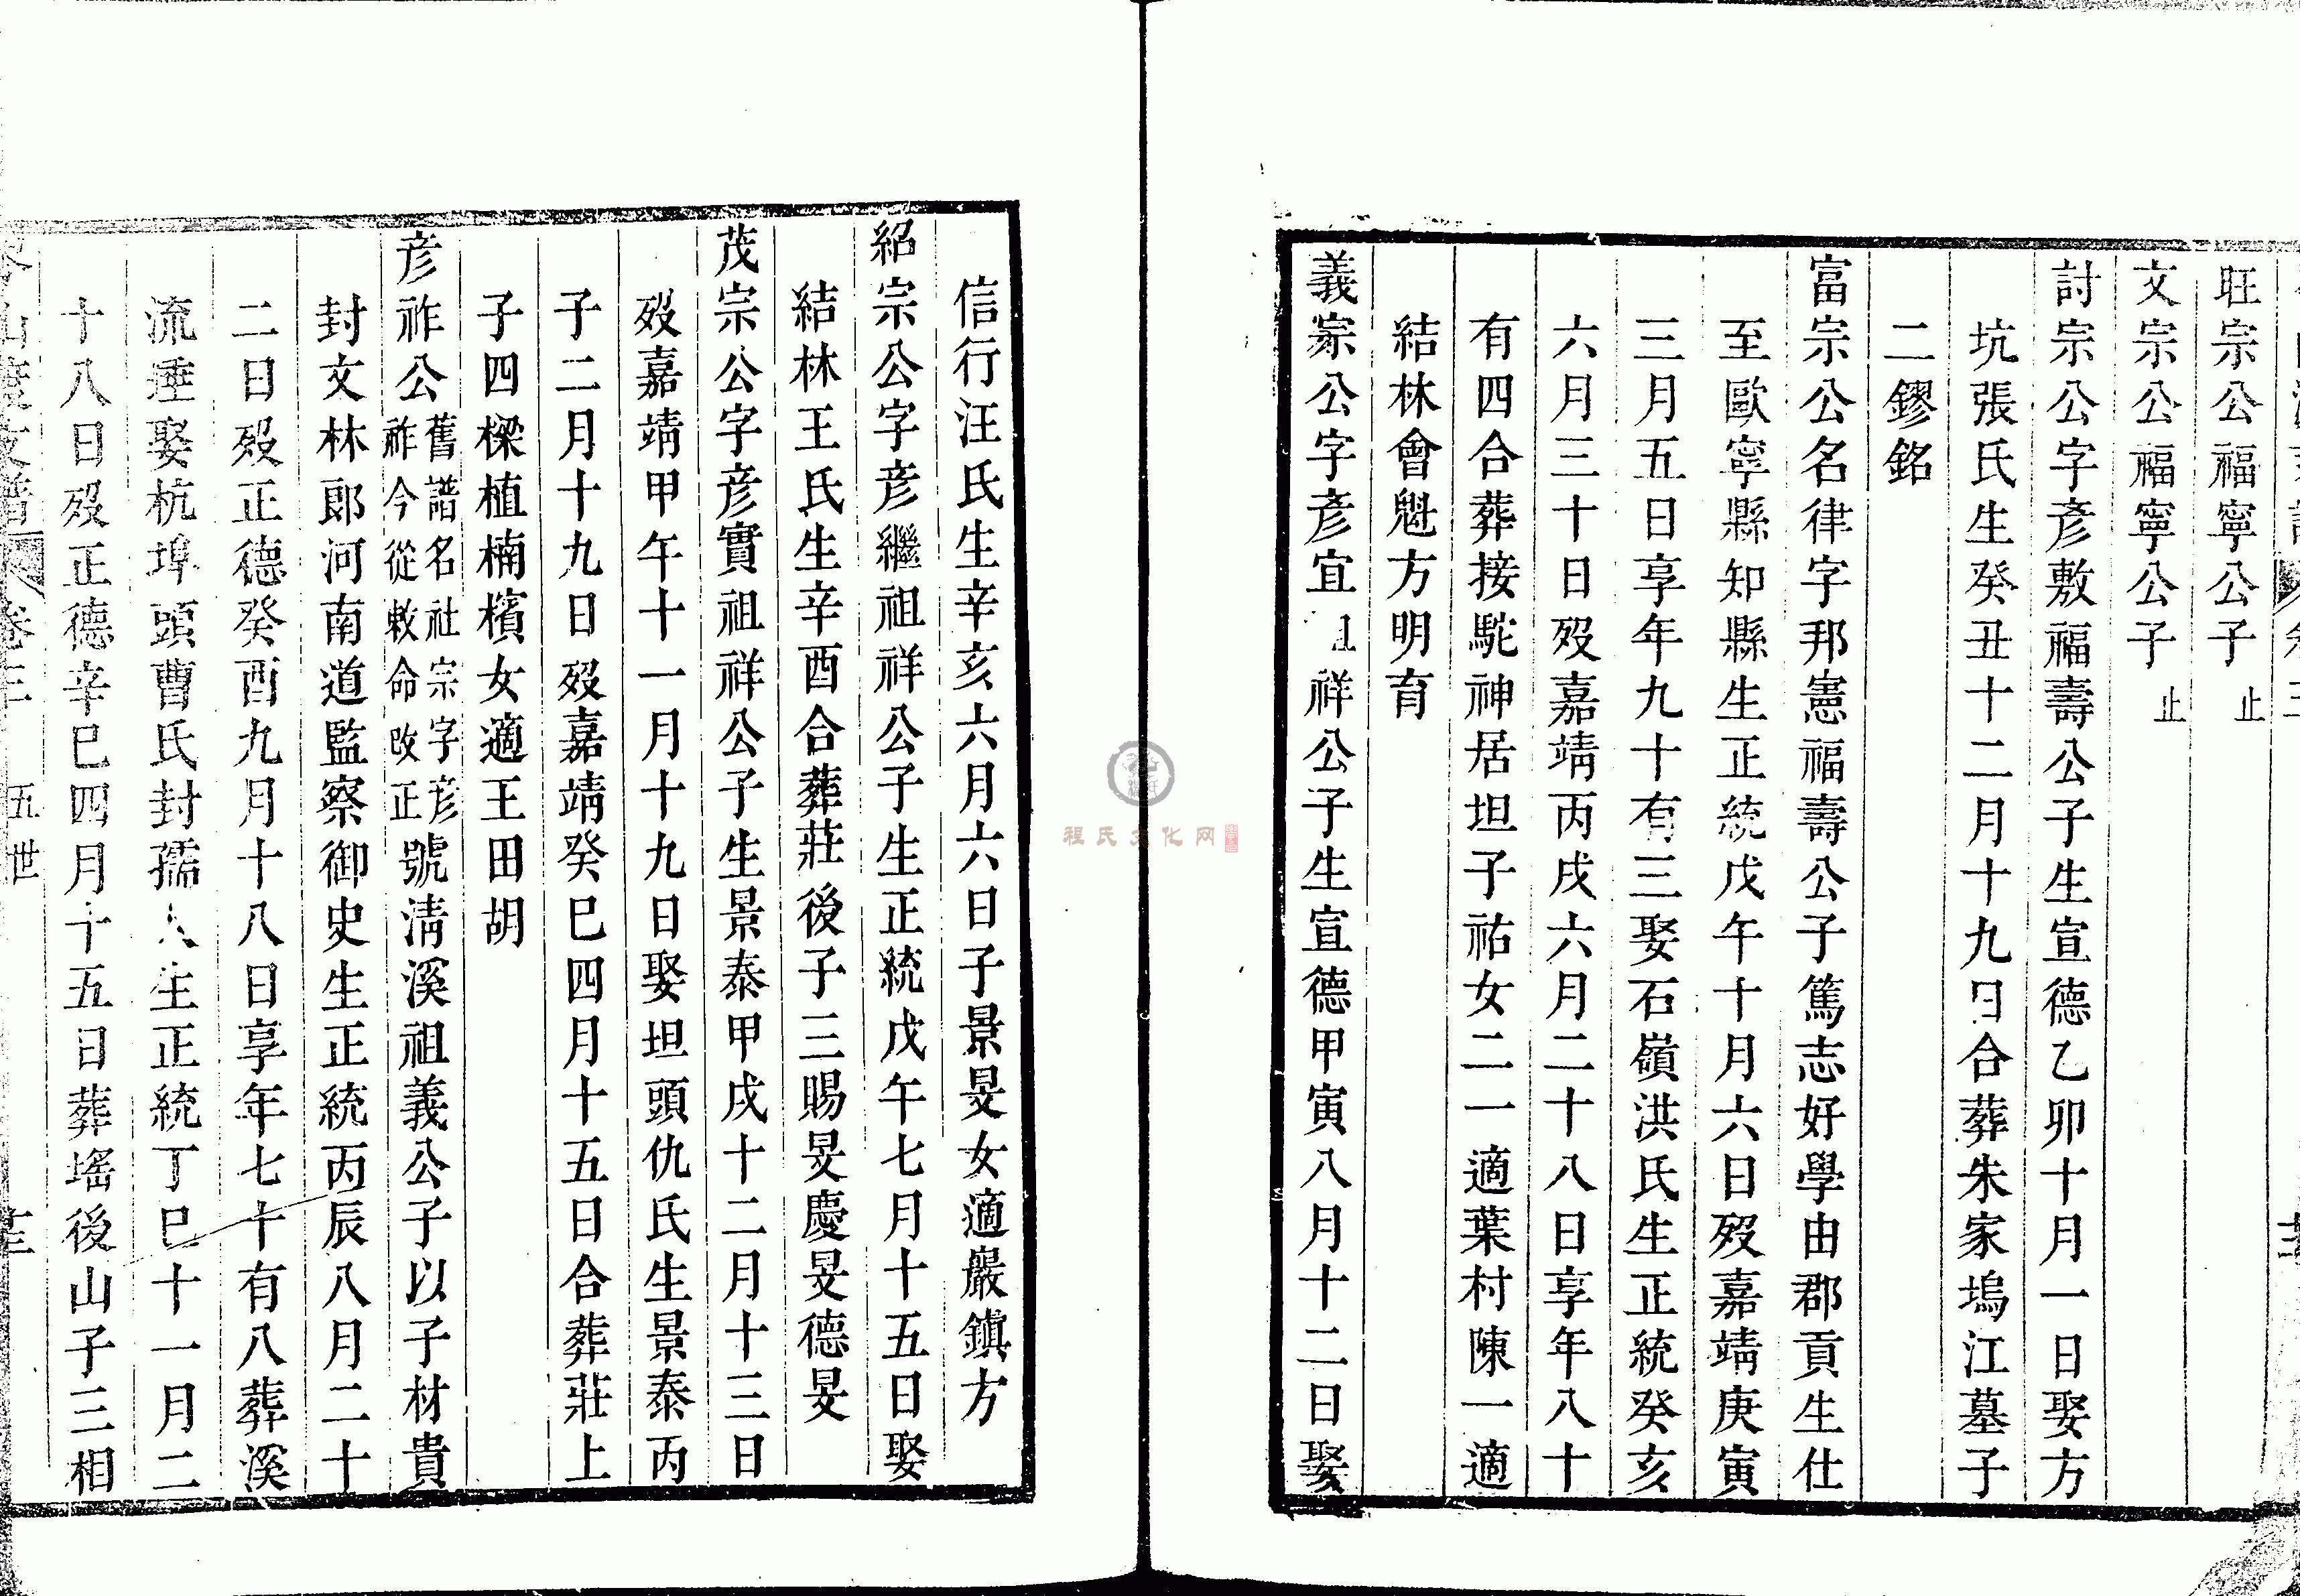 旺宗公福寧公子止
文宗公福寧公子止
討宗公字彦敷福壽公子生宣德乙卯十月一日娶方
坑張氏生癸丑十二月十九日合葬朱家塢江墓子
二鏐銘
富宗公名律字邦憲福壽公子篤志好學由郡貢生仕
至歐寧縣知縣生正統戊午十月六日歿嘉靖庚寅
三月五日享年九十有三娶石嶺洪氏生正統癸亥
六月三十日歿嘉靖丙戌六月二十八日享年八十
有四合葬接駝神居坦子祐女二一適葉村陳一適
結林會魁方明育
義宗公字彦宜祥公子生宣德甲寅八月十二日娶
信行汪氏生辛亥六月六日子景旻女適嚴鎮方
紹宗公字彦繼祖祥公子生正統戊午七月十五日娶
結林王氏生辛酉合葬莊後子三賜旻慶旻德旻
茂宗公字彦實祖祥公子生景泰甲戌十二月十三日
歿嘉靖甲午十一月十九日娶坦頭仇氏生景泰丙
子二月十九日歿嘉靖癸巳四月十五日合葬莊上
子四樑植楠檳女適王田胡
彦祚公舊譜名社宗字彦祚今從敕命改正號清溪祖義公子以子材貴
封文林郎河南道監察御史生正統丙辰八月二十
二日歿正德癸酉九月十八日享年七十有八葬溪
流埀娶杭埠頭曹氏封孺人生正統丁巳十一月二
十八日歿正德辛巳四月十五日葬瑤後山子三相
卷三 五世 十三
程氏文化网